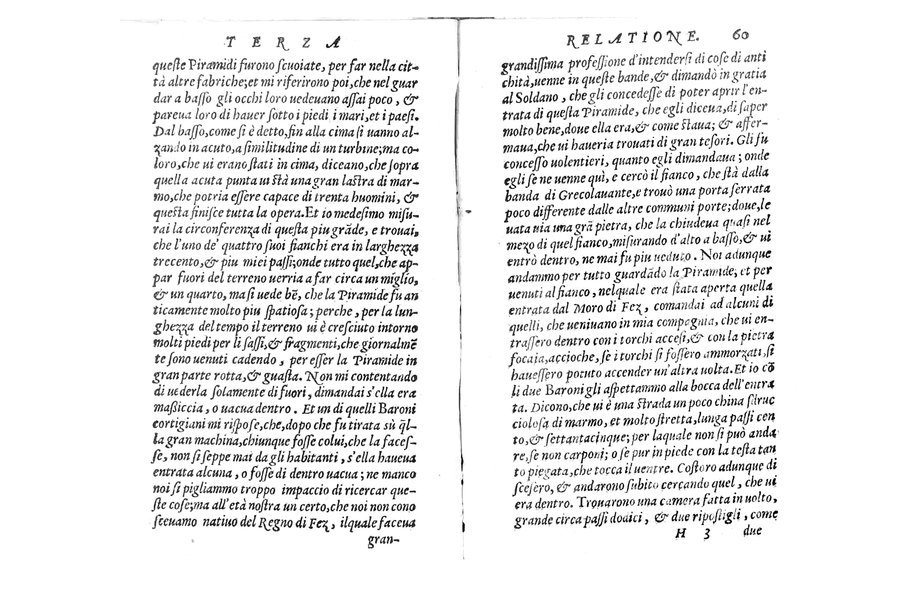 TERZA
queſte Piramidi furono ſcuoiate, per far nella cit-
tà altre fabriche; et mi riferirono poi, che nel guar
dar a baſſo gli occhi loro uedeuano aſſai poco, &
pareua loro di hauer ſotto i piedi i mari, et i paeſi.
Dal baſſo, come ſi è detto, fin alla cima ſi uanno al-
zando in acuto, a ſimilitudine di un turbine; ma co-
loro, che ui erano ſtati in cima, diceano, che ſopra
quella acuta punta ui ſtà una gran laſtra di mar-
mo, che potria eſſere capace di trenta huomini, &
queſta finiſce tutta la opera. Et io medeſimo miſu-
rai la circonferenza di queſta piu grāde, e trouai,
che l'uno de' quattro ſuoi fianchi era in larghezza
trecento, & piu miei paſſi; onde tutto quel, che ap-
par fuori del terreno uerria a far circa un miglio,
& un quarto, ma ſi uede bē, che la Piramide fu an
ticamente molto piu ſpatioſa; perche, per la lun-
ghezza del tempo il terreno ui è creſciuto intorno
molti piedi per li ſaſſi, & fragmenti, che giornalmē
te ſono uenuti cadendo, per eſſer la Piramide in
gran parte rotta, & guaſta. Non mi contentando
di uederla ſolamente di fuori, dimandai s'ella era
maſſiccia, o uacua dentro. Et un di quelli Baroni
cortigiani mi riſpoſe, che, dopo che fu tirata sù q̄l-
la gran machina, chiunque foſſe colui, che la faceſ-
ſe, non ſi ſeppe mai da gli habitanti, s'ella haueua
entrata alcuna, o foſſe di dentro uacua; ne manco
noi ſi pigliammo troppo impaccio di ricercar que-
ſte coſe; ma all'età noſtra un certo, che noi non cono
ſceuamo natiuo del Regno di Fez, ilquale faceua
gran-
RELATIONE. 60
grandiſſima profeſſione d'intenderſi di coſe di anti
chità, uenne in queſte bande, & dimandò in gratia
al Soldano, che gli concedeſſe di poter aprir l'en-
trata di queſta Piramide, che egli diceua, di ſaper
molto bene, doue ella era, & come ſtaua; & affer-
maua, che ui haueria trouati di gran teſori. Gli fu
conceſſo uolentieri, quanto egli dimandaua; onde
egli ſe ne uenne quì, e cercò il fianco, che ſtà dalla
banda di Grecoleuante, e trouò una porta ſerrata
poco differente dalle altre communi porte; doue, le
uata uia una grā pietra, che la chiudeua quaſi nel
mezo di quel fianco, miſurando d'alto a baſſo, & ui
entrò dentro, ne mai fu piu ueduto. Noi adunque
andammo per tutto guardādo la Piramide; et per
uenuti al fianco, nelquale era ſtata aperta quella
entrata dal Moro di Fez, comandai ad alcuni di
quelli, che ueniuano in mia compagnia, che ui en-
traſſero dentro con i torchi acceſi, & con la pietra
focaia, accioche, ſe i torchi ſi foſſero ammorzati, ſi
haueſſero potuto accender un'altra uolta. Et io cō
li due Baroni gli aſpettammo alla bocca dell'entra
ta. Dicono, che ui è una ſtrada un poco china ſdruc
cioloſa di marmo, et molto ſtretta, lunga paſſi cen
to, & ſettantacinque; per laquale non ſi può anda
re, ſe non carponi; o ſe pur in piede con la teſta tan
to piegata, che tocca il uentre. Coſtoro adunque di
ſceſero, & andarono ſubito cercando quel, che ui
era dentro. Trouarono una camera fatta in uolto,
grande circa paſſi dodici, & due ripoſtigli, come
H 3 due